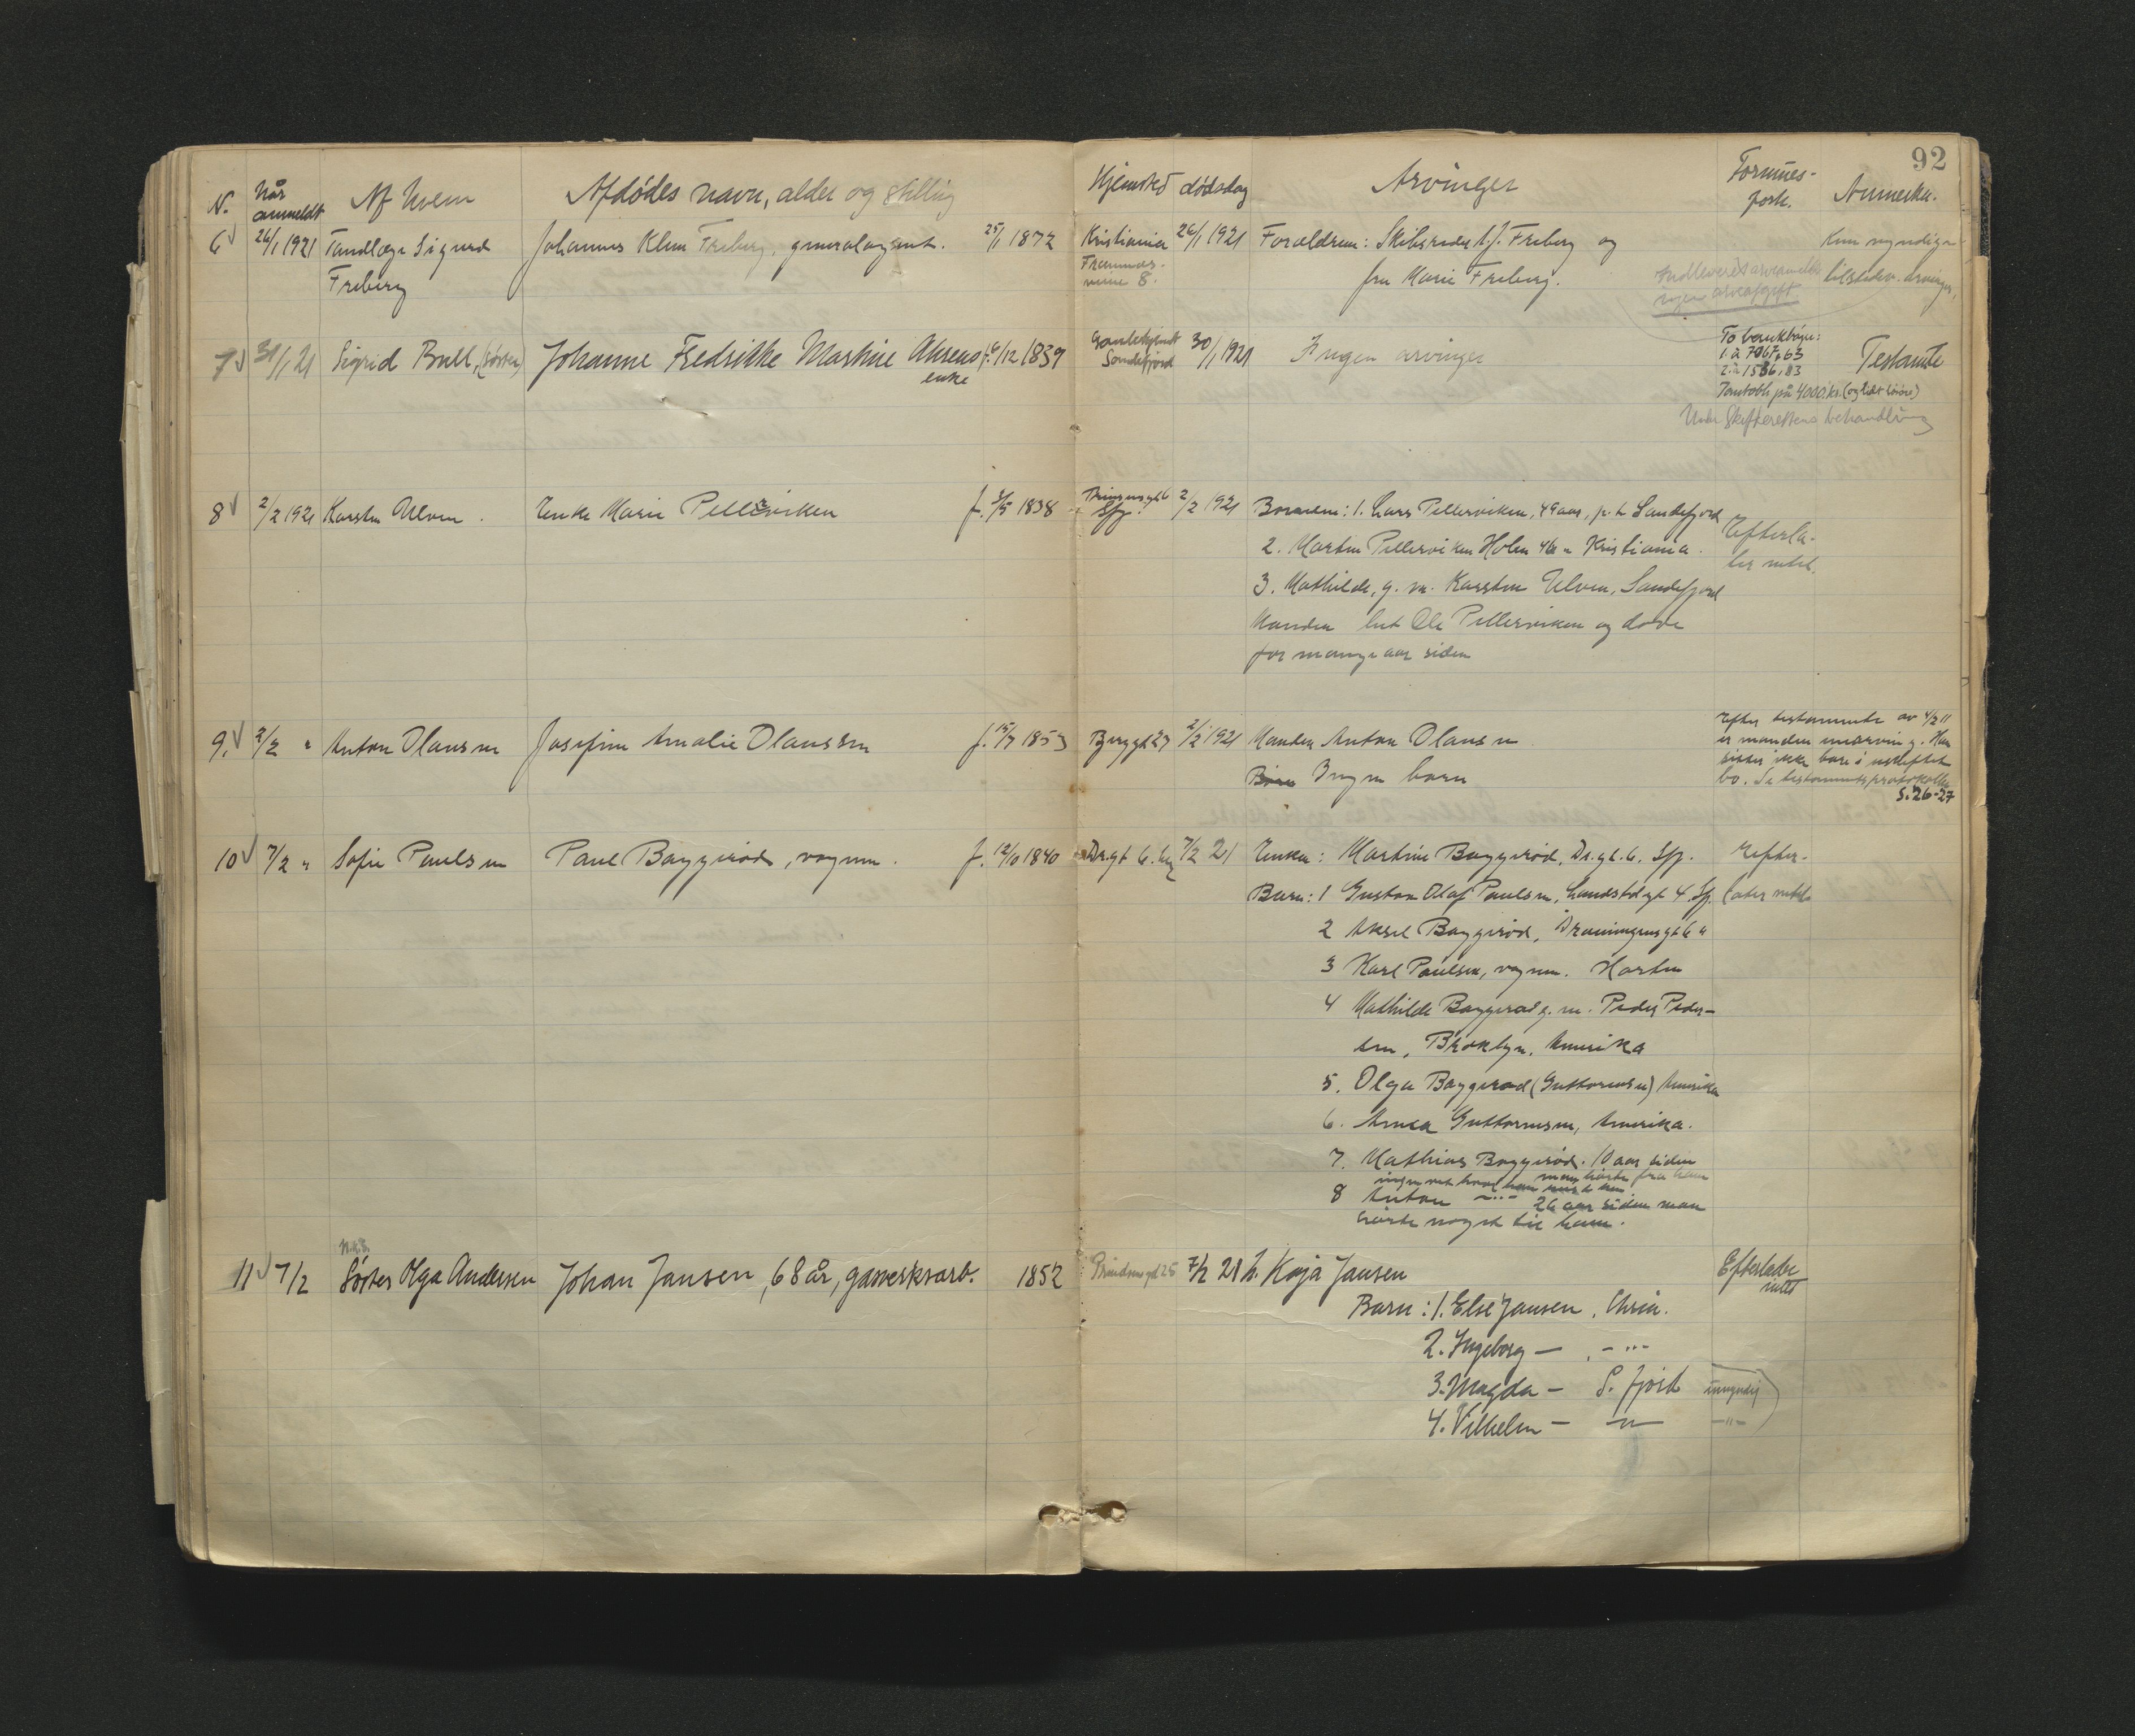 92
N. Når anmeldt Af hvem Afdødes navn, alder og stilling Hjemsted dødsdag Arvinger Formues-forh. Anmerkn.
6 26/1 1921 Tandlæge Sigurd Johannes Klem Friberg, generalagent. 25/1 1872 Kristiania 26/1 1921 Forældrene: Skibsreder A.J. Friberg og Kun myndige
Friberg 8. fru Marie Friberg. tilstedev. arvinger,
ingen arveafgift
7 31/1 21 Sigrid Bull, (søster) Johanne Fredrikke Martine Ahrens f. 6/12 1839 Gamlehjemmet 30/1 1921 Ingen arvinger To bankbøger: Testamente
enke Sandefjord 1. à 7067,63
2. à 1586,83
Pantobl. på 4000 kr. (og lidt løsøre)
Under Skifterettens behandling
8 2/2 1921 Karsten Ulven. Enke Marie Pellerviken f. 3/5 1838 Prinsensgt 6 Sfj. 2/2 1921 Børnene: 1. Lars Pellerviken, 49 aar, p.t. Sandefjord Efterla-
2. Martin Pellerviken Holm 46 " Kristiania. ter intet.
3. Mathilde, g. m. Karsten Ulven, Sandefjord
Manden het Ole Pellerviken og døde
for mange aar siden
9. 2/2 " Anton Olausen Josefine Amalie Olaussen f. 15/7 1853 Bjerggt 27 2/2 1921 Manden Anton Olausen Efter testamente av 4/2 11
Børn Ingen barn er manden enearving. Han
sitter ikke bare i uskiftet
bo. Se testamentsprotokollen
S. 26-27
10 7/2 " Sofie Paulsen Paul Bøggerød, vognm. f. 12/10 1840 Dr.gt 6. 7/2 21 Enken: Martine Bøggerød, Dr.gt. 6. Sfj. Efter-
Barn: 1 Gustav Olaf Paulsen, Landstadgt 4 Sfj. later intet
2 Aksel Bøggerød, Dronningensgt 6 "
3 Karl Paulsen, vognm. Horten
4 Mathilde Bøggerød g. m. Peder Peder-
sen, Broklyn, Amerika
5. Olga Bøggerød (Guttormsen) Amerika
6. Anna Guttormsen, Amerika.
7. Mathias Bøggerød. 10 aar siden
man hørte fra ham
8 Anton -"- 26 aar siden man
hørte noget til ham.
11 7/2 Søster Olga Andersen Johan Jansen, 68 år, gasverksarb. 1852 Prindsensgd 25 7/2 21 h. Kaja Jansen Efterlader
intet
Barn: 1. Else Jansen, Chria.
2. Ingeborg — , -"-
3. Magda — S.fjord umyndig
4. Vilhelm — -"- -"-